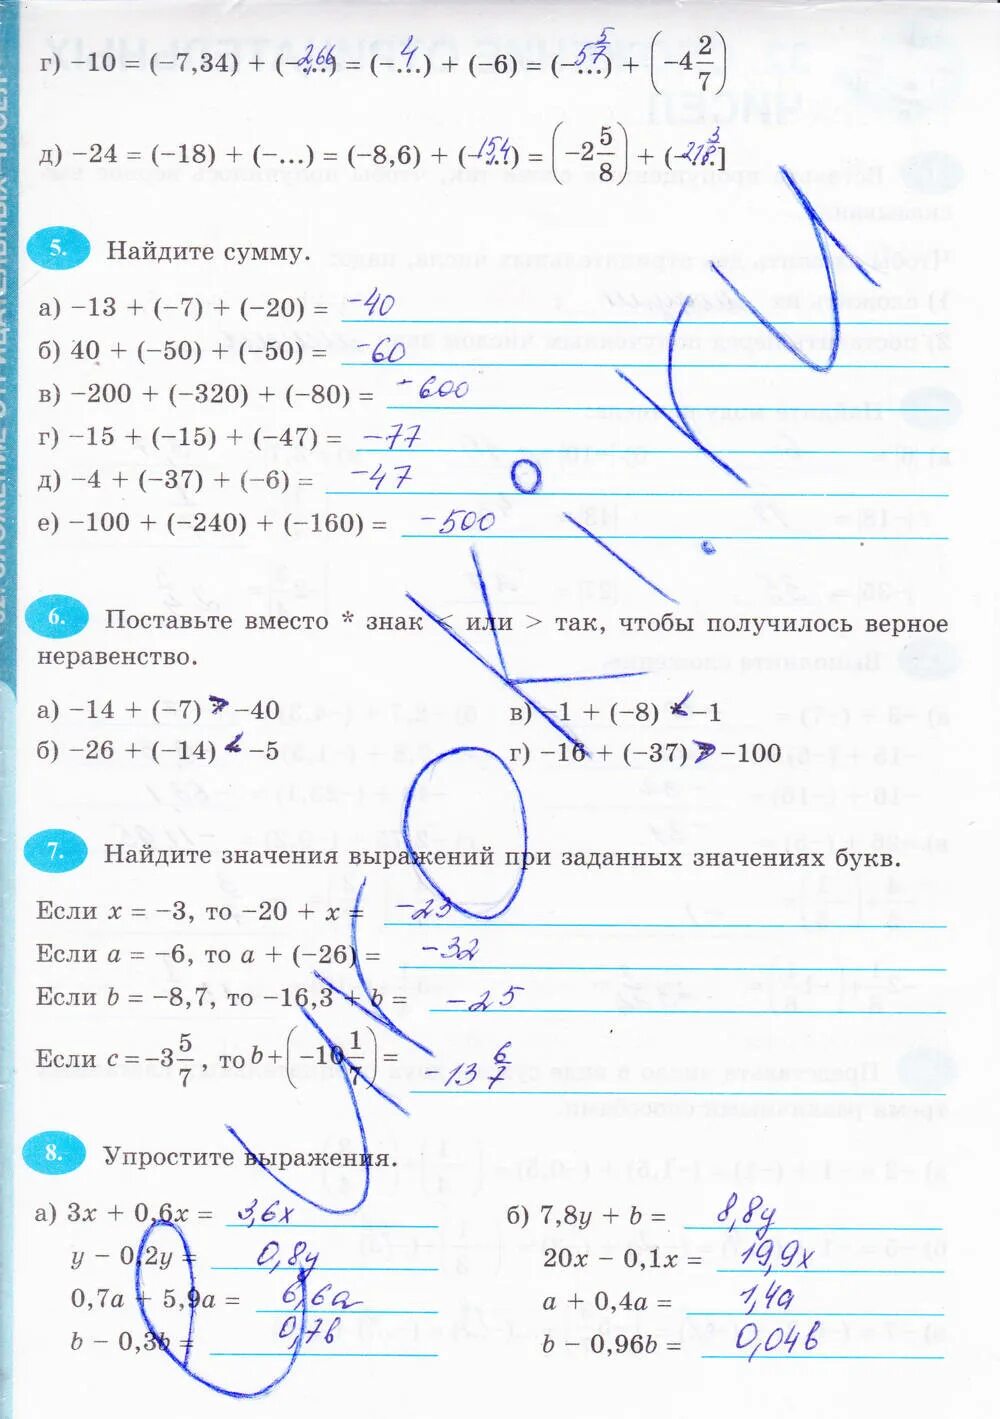 г) −10 = (−7,34) + (−2,66) = (−4) + (−6) = (−5 5/7) + (−4 2/7)
д) −24 = (−18) + (−...) = (−8,6) + (−15,4) = (−2 5/8) + (−21 3/8]
5. Найдите сумму.
а) −13 + (−7) + (−20) = −40
б) 40 + (−50) + (−50) = −60
в) −200 + (−320) + (−80) = −600
г) −15 + (−15) + (−47) = −77
д) −4 + (−37) + (−6) = −47
е) −100 + (−240) + (−160) = −500
6. Поставьте вместо * знак < или > так, чтобы получилось верное
неравенство.
а) −14 + (−7) > −40
в) −1 + (−8) < −1
б) −26 + (−14) < −5
г) −16 + (−37) > −100
7. Найдите значения выражений при заданных значениях букв.
Если x = −3, то −20 + x = −23
Если a = −6, то a + (−26) = −32
Если b = −8,7, то −16,3 + b = −25
Если c = −3 5/7, то b + (−10 1/7) = 13 6/7
8. Упростите выражения.
а) 3x + 0,6x = 3,6x
б) 7,8y + b = 8,8y
y − 0,2y = 0,8y
20x − 0,1x = 19,9x
0,7a + 5,9a = 6,6a
a + 0,4a = 1,4a
b − 0,3b = 0,7b
b − 0,96b = 0,04b